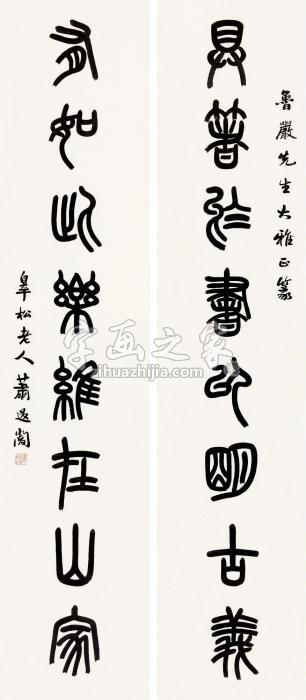 魯嚴先生大雅正篆
具箸於書以明古義
有如此樂維在山家
皋松老人蕭退闇
字画之家
zihuazhijia.com